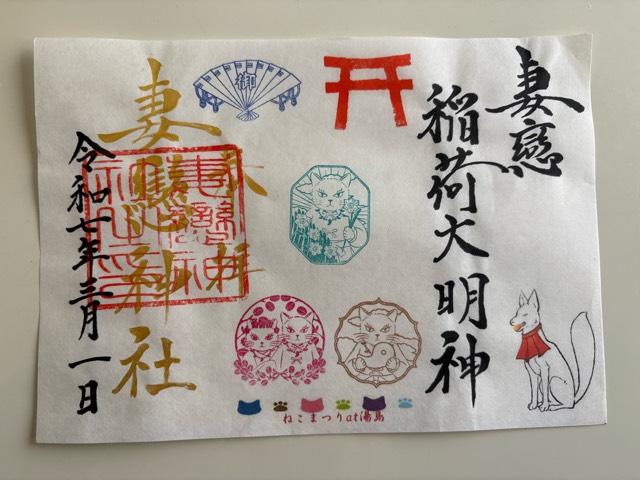 妻戀
稲荷大明神
奉拝
妻戀神社
令和七年三月一日
ねこまつりat湯島